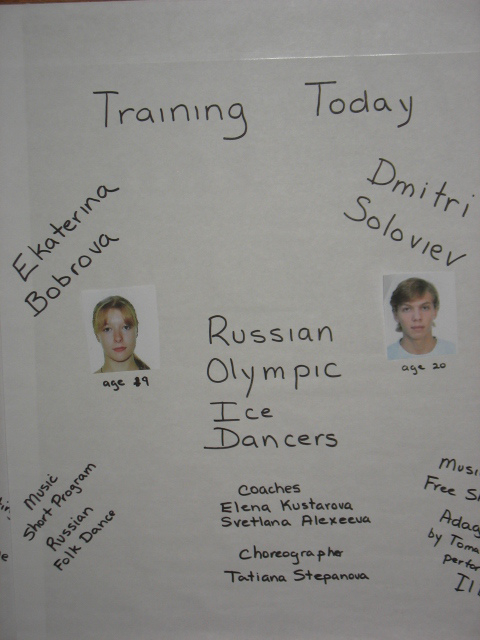 Training Today
Ekaterina
Bobrova
Dmitri
Soloviev
age 19
age 20
Russian
Olympic
Ice
Dancers
Coaches
Elena Kustarova
Svetlana Alexeeva
Choreographer
Tatiana Stepanova
Music
Short Program
Russian
Folk Dance
Musi
Free S
Adag
by Toma
perfor
Il